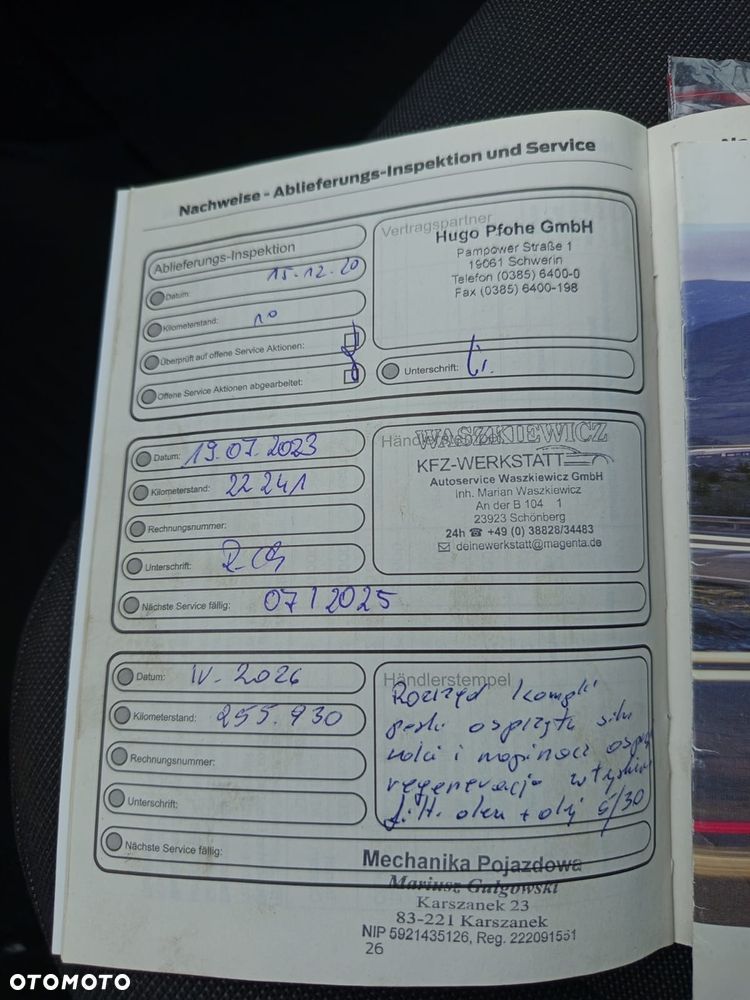 Nachweise - Ablieferungs-Inspektion und Service
Ablieferungs-Inspektion
Datum: 15.12.20
Kilometerstand: 10
Überprüft auf offene Service Aktionen:
Offene Service Aktionen abgearbeitet:
Vertragspartner
Hugo Pfohe GmbH
Pampower Straße 1
19061 Schwerin
Telefon (0385) 6400-0
Fax (0385) 6400-198
Unterschrift:
Datum: 19.07.2023
Kilometerstand: 22 241
Rechnungsnummer:
Unterschrift:
Nächste Service fällig: 07/2025
Händlerstempel
WASZKIEWICZ
KFZ-WERKSTATT
Autoservice Waszkiewicz GmbH
Inh. Marian Waszkiewicz
An der B 104 1
23923 Schönberg
24h ☎ +49 (0) 38828/34483
✉ deinewerkstatt@magenta.de
Datum: IV. 2026
Kilometerstand: 255.930
Rechnungsnummer:
Unterschrift:
Nächste Service fällig:
Händlerstempel
Rozrząd kompl
paski osprzętu
rolki i napinacz
regeneracja
filt. oleju + olej 5/30
Mechanika Pojazdowa
Mariusz Gulgowski
Karszanek 23
83-221 Karszanek
NIP 5921435126, Reg. 222091551
26
OTOMOTO